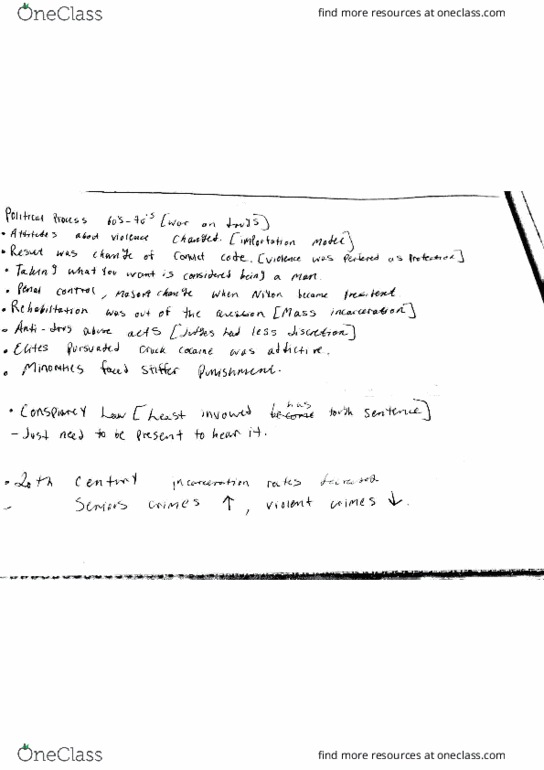 OneClass
find more resources at oneclass.com
Political Process 60's-70's [war on drugs]
• Attitudes about violence changed. [importation model]
• Result was change of convict code. [violence was perfered as protection]
• Taking what you want is considered being a man.
• Penal control, major change when Nixon became president
• Rehabiltation was out of the question [Mass incarceration]
- Anti-drug abuse acts [Judges had less discretion]
• Elites pursuaded crack cocaine was addictive.
• Minorities faced stiffer punishment.
• Conspiarcy Law [Least invovled has tough sentence]
- Just need to be present to hear it.
• 20th Century incarceration rates
- Seriors crimes ↑, violent crimes ↓.
OneClass
find more resources at oneclass.com